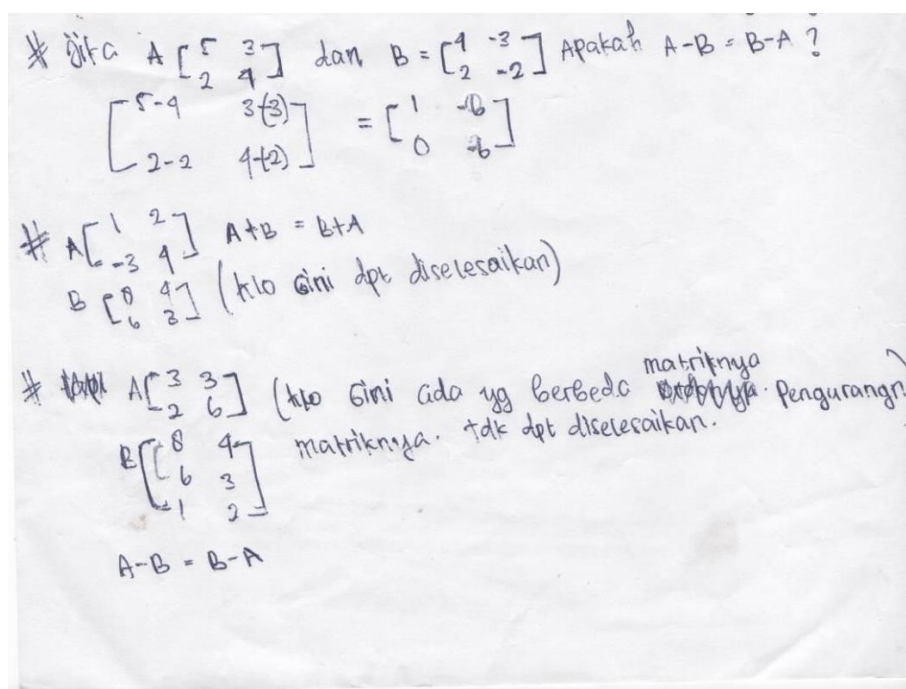 # Jika A [5 3] dan B = [4 -3] Apakah A-B = B-A ?
2 4 2 -2
[5-4 3-(-3)] = [1 -6]
2-2 4-(-2) 0 -6
# A[1 2] A+B = B+A
-3 4
B [8 4] (klo Gini dpt diselesaikan)
6 3
# A[3 3] (klo Gini ada yg berbeda matriknya. Pengurangn
2 6 matriknya. tdk dpt diselesaikan.
B[8 4]
6 3
1 2
A-B = B-A